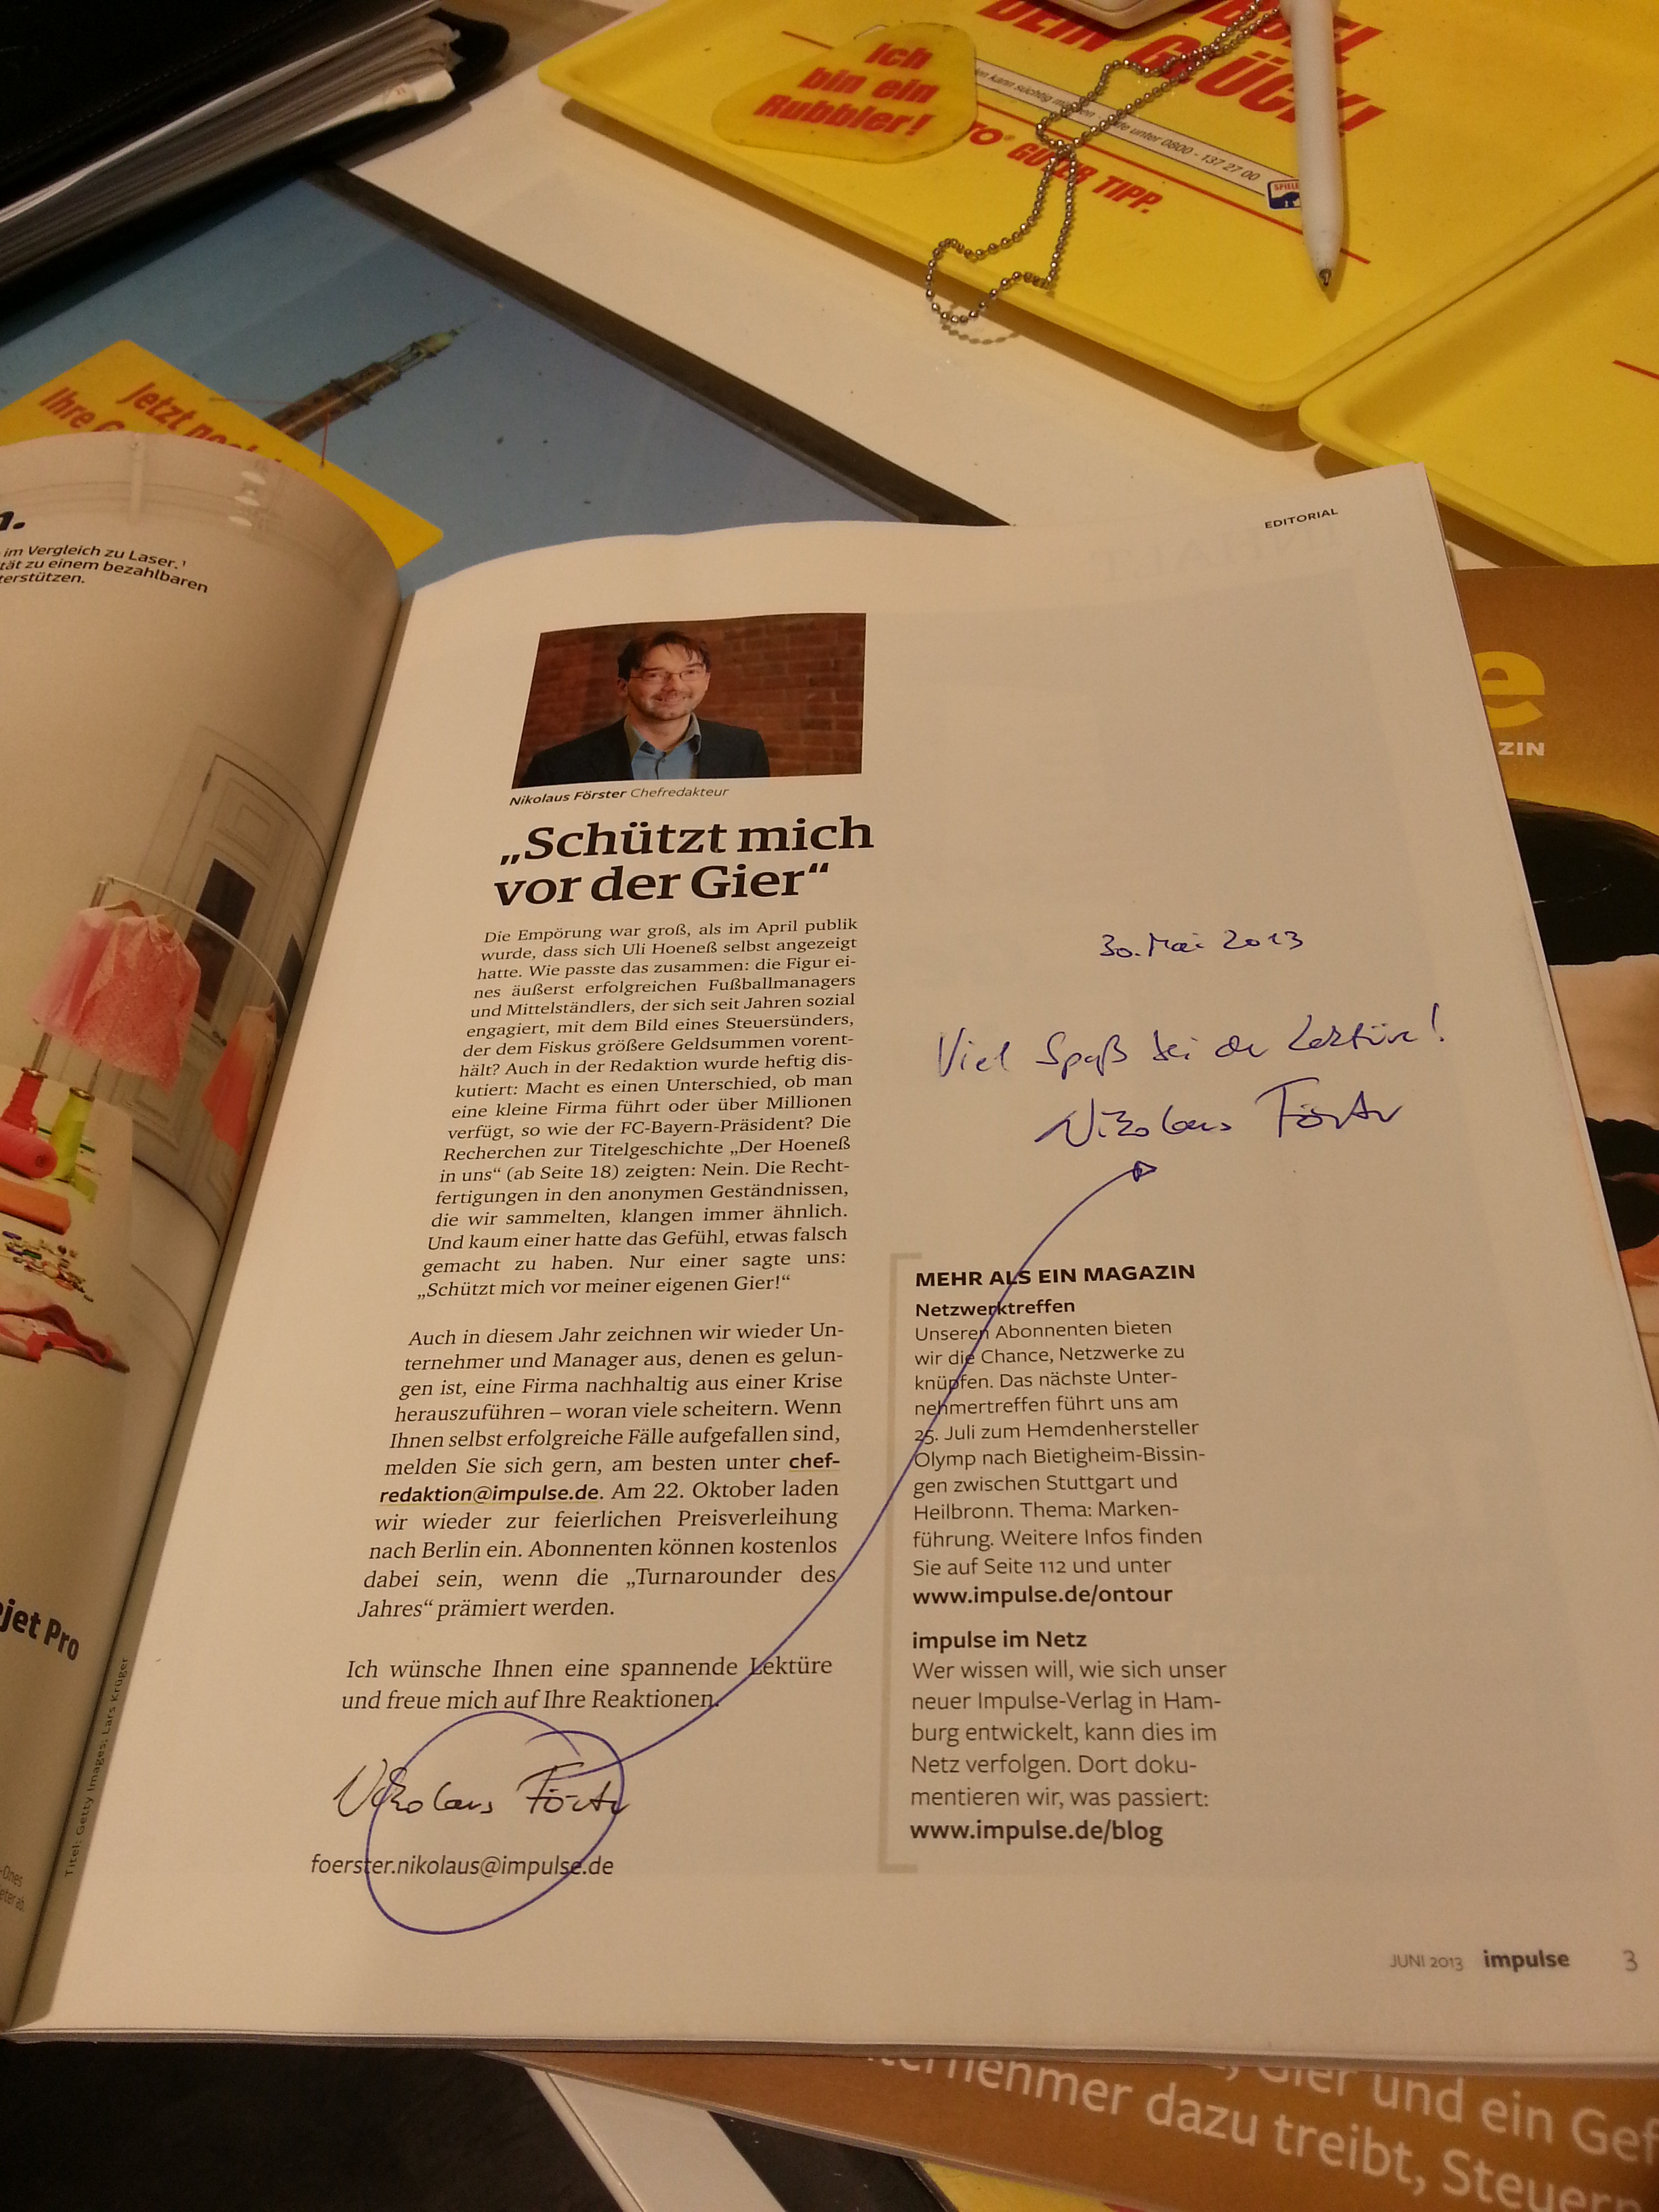 Ich
bin ein
Rubbler!
DEIN GLÜCK!
kann süchtig
unter 0800 - 137 27 00
GUTER TIPP.
SPIELE
Jetzt
Ihre
im Vergleich zu Laser.¹
zu einem bezahlbaren
EDITORIAL
ZIN
Nikolaus Förster Chefredakteur
„Schützt mich
vor der Gier“
Die Empörung war groß, als im April publik
wurde, dass sich Uli Hoeneß selbst angezeigt
hatte. Wie passte das zusammen: die Figur ei-
nes äußerst erfolgreichen Fußballmanagers
und Mittelständlers, der sich seit Jahren sozial
engagiert, mit dem Bild eines Steuersünders,
der dem Fiskus größere Geldsummen vorent-
hält? Auch in der Redaktion wurde heftig dis-
kutiert: Macht es einen Unterschied, ob man
eine kleine Firma führt oder über Millionen
verfügt, so wie der FC-Bayern-Präsident? Die
Recherchen zur Titelgeschichte „Der Hoeneß
in uns“ (ab Seite 18) zeigten: Nein. Die Recht-
fertigungen in den anonymen Geständnissen,
die wir sammelten, klangen immer ähnlich.
Und kaum einer hatte das Gefühl, etwas falsch
gemacht zu haben. Nur einer sagte uns:
„Schützt mich vor meiner eigenen Gier!“
Auch in diesem Jahr zeichnen wir wieder Un-
ternehmer und Manager aus, denen es gelun-
gen ist, eine Firma nachhaltig aus einer Krise
herauszuführen – woran viele scheitern. Wenn
Ihnen selbst erfolgreiche Fälle aufgefallen sind,
melden Sie sich gern, am besten unter chef-
redaktion@impulse.de. Am 22. Oktober laden
wir wieder zur feierlichen Preisverleihung
nach Berlin ein. Abonnenten können kostenlos
dabei sein, wenn die „Turnarounder des
Jahres“ prämiert werden.
Ich wünsche Ihnen eine spannende Lektüre
und freue mich auf Ihre Reaktionen.
Nikolaus Förster
foerster.nikolaus@impulse.de
30. Mai 2013
Viel Spaß bei der Lektüre!
Nikolaus Förster
MEHR ALS EIN MAGAZIN
Netzwerktreffen
Unseren Abonnenten bieten
wir die Chance, Netzwerke zu
knüpfen. Das nächste Unter-
nehmertreffen führt uns am
25. Juli zum Hemdenhersteller
Olymp nach Bietigheim-Bissin-
gen zwischen Stuttgart und
Heilbronn. Thema: Marken-
führung. Weitere Infos finden
Sie auf Seite 112 und unter
www.impulse.de/ontour
impulse im Netz
Wer wissen will, wie sich unser
neuer Impulse-Verlag in Ham-
burg entwickelt, kann dies im
Netz verfolgen. Dort doku-
mentieren wir, was passiert:
www.impulse.de/blog
jet Pro
Titel: Getty Images; Lars Krüger
JUNI 2013 impulse 3
Gier und ein Gef
ternehmer dazu treibt, Steuern